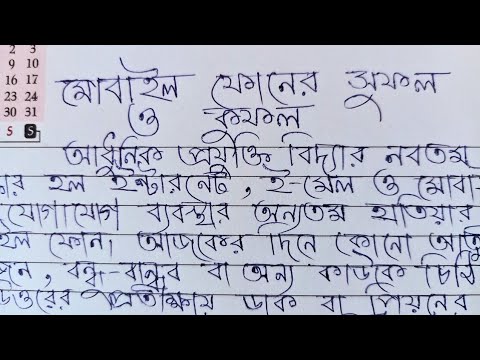 2 3
9 10
16 17
23 24
30 31
5 S
মোবাইল ফোনের সুফল
ও কুফল
আধুনিক প্রযুক্তি বিদ্যার নবতম
হল ইন্টারনেট, ই-মেল ও মোবা-
যোগাযোগ ব্যবস্থার অন্যতম হাতিয়ার
ফোন। আজকের দিনে কোনো
বন্ধু-বান্ধব বা অন্য কাউকে চিঠি
প্রতীক্ষায় ডাক বা পিয়নের